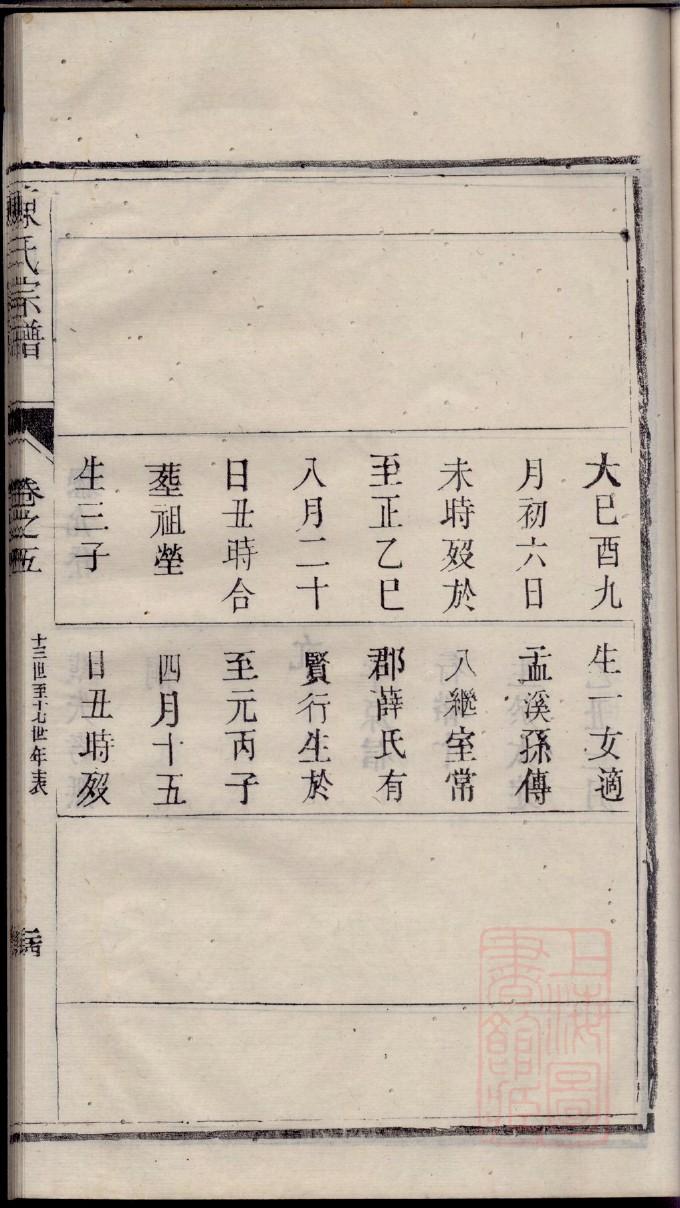 大巳酉九
月初六日
未時歿於
至正乙巳
八月二十
日丑時合
塟祖塋
生三子
生一女適
孟溪孫傳
八繼室常
郡薛氏有
賢行生於
至元丙子
四月十五
日丑時歿
氏宗譜
卷之五
十三世至十七世年表
上海圖書館藏